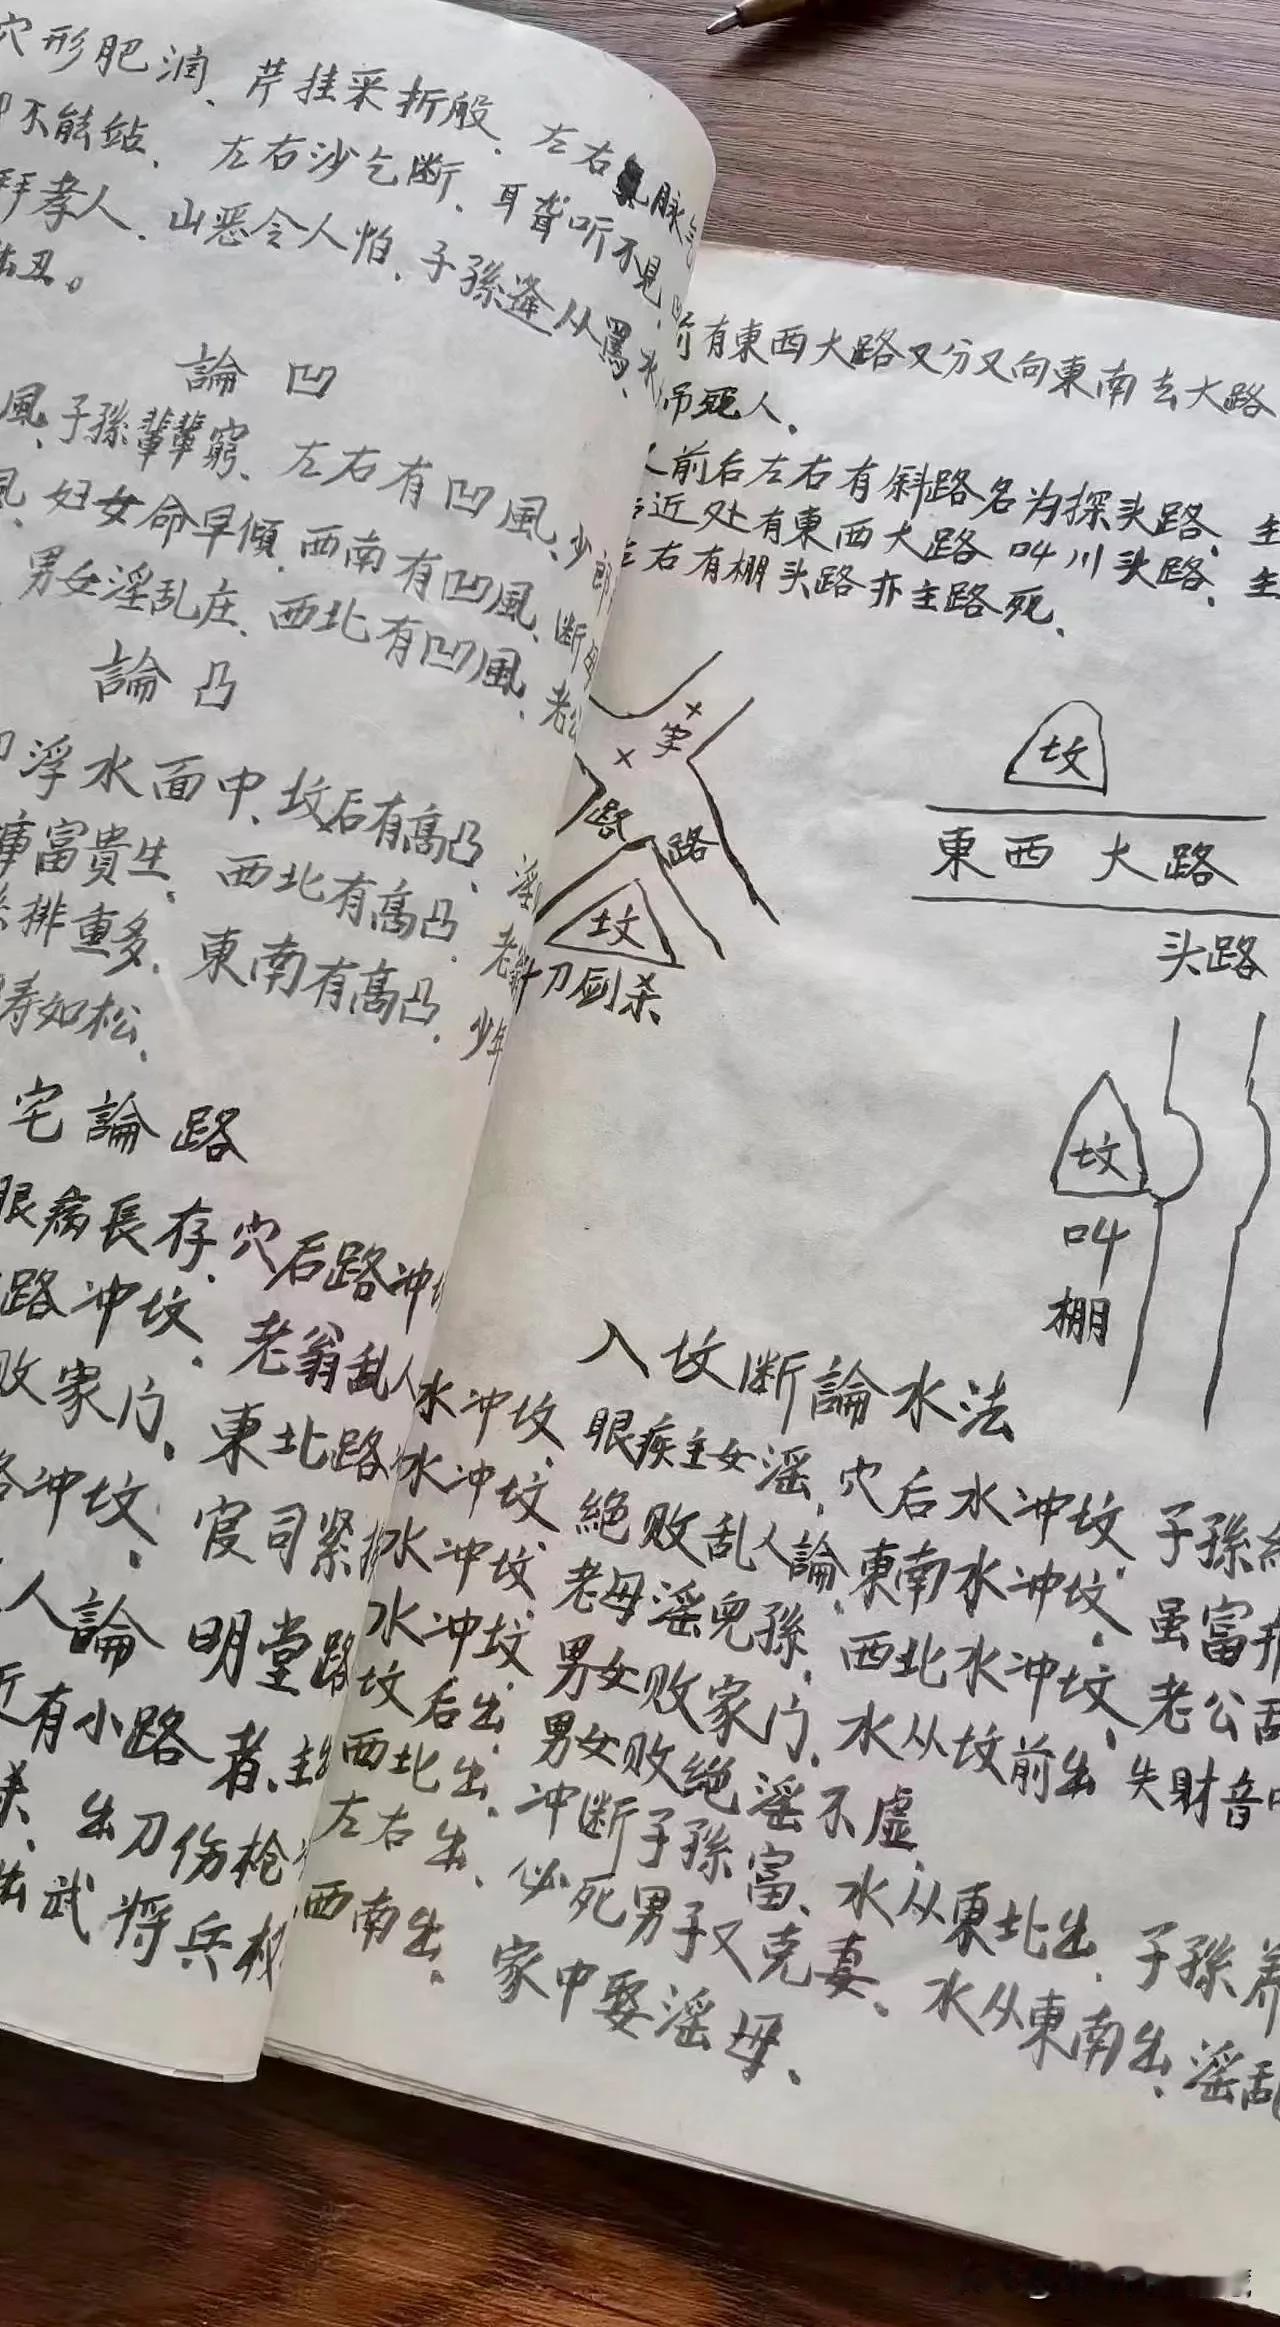 穴形肥润、芹挂采折般、左右脉气
不能站、左右沙乞断、耳聋听不见
孝人、山恶令人怕、子孫逢从罵、水
丑。
論凹
風、子孫輩輩窮、左右有凹風、少
妇女命早傾、西南有凹風、断
男女淫乱庄、西北有凹風、老公
論凸
浮水面中、坟后有高凸、淫
庫富貴生、西北有高凸、老
排重多、東南有高凸、少年
寿如松、
宅論路
眼病長存、穴后路冲
路冲坟、老翁乱人
败家门、東北路
冲坟、官司紧
人論明堂路
近有小路者、主
杀、出刀伤枪
武将兵权
前有東西大路又分又向東南去大路
吊死人、
前后左右有斜路名为探头路、主
近处有東西大路叫川头路、主
左右有棚头路亦主路死、
路
路
坟
刀剑杀
坟
東西大路
头路
坟
叫
棚
入坟断論水法
水冲坟、眼疾主女淫、穴后水冲坟、子孫
水冲坟、絶败乱人論、東南水冲坟、虽富
水冲坟、老母淫兒孫、西北水冲坟、老公
水冲坟、男女败家门、水从坟前出、失財
坟后出、男女败絶淫不虚、
西北出、冲断子孫富、水从東北出、子孫
左右出、必死男子又克妻、水从東南出、淫乱
西南出、家中娶淫母、